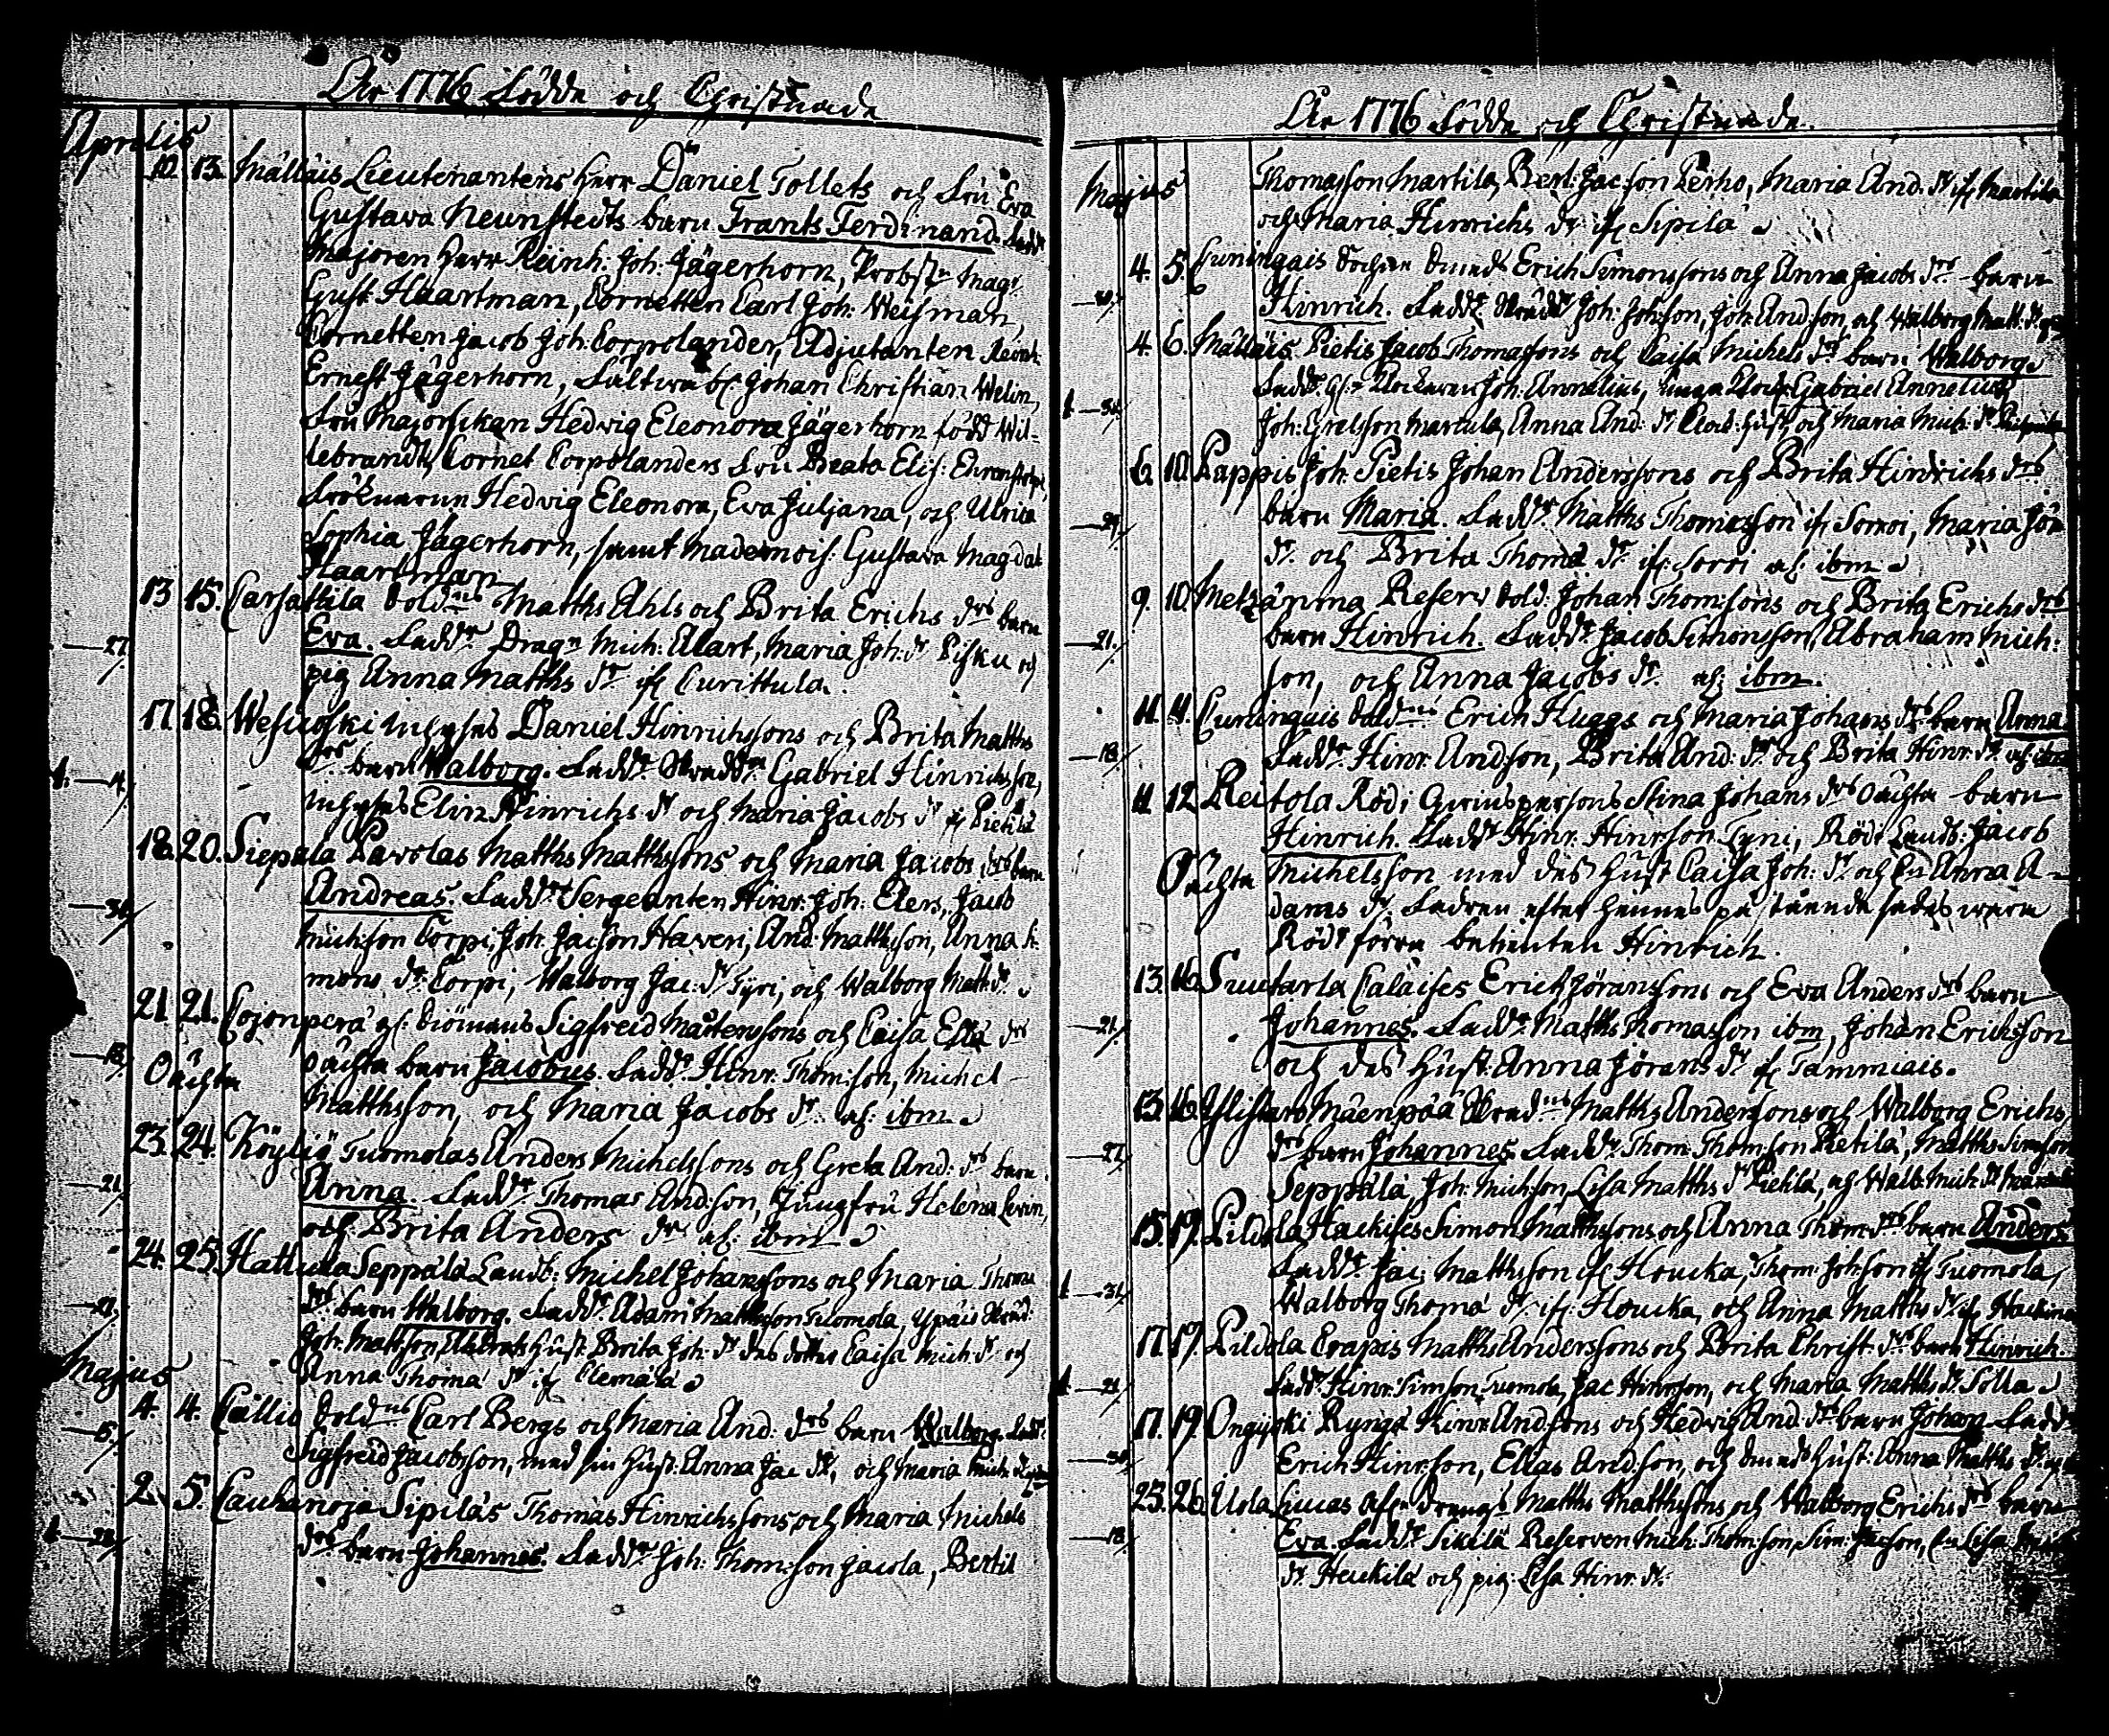 År 1776 Födde och Christnade
Aprilis
10 13. Mälläis Lieutenantens Herr Daniel Tollets och Fru Eva
Gustava Neunstedts barn Frants Ferdinand. Fadd:
Majoren Herr Reinh: Joh: Jägerhorn, Probsten Mag:
Gust: Haartman, Cornetten Carl Joh: Weisman,
Cornetten Jacob Joh: Corpolander, Adjutanten Reinh:
Ernest Jägerhorn, Johan Christian Welin,
Fru Majorskan Hedvig Eleonora Jägerhorn född Wil-
lebrandt, Cornet Corpolanders Fru Beata Elis:
Fröknarna Hedvig Eleonora, Eva Juljana, och Ulrica
Sophia Jägerhorn, samt Mademois: Gustava Magdal:
Haartman
13 15. Carsattila Sold:ns Matths Ahls och Brita Erichs drs barn
—27/ Eva. Fadd:r Drag:n Mich: Alart, Maria Joh: dr Pisku och
pig Anna Matths dr if: Curittula.
17. 18. Daniel Hinrichssons och Brita Matths
drs barn Walborg. Fadd:r Gabriel Hinrichsson,
t. —4/ Inhyses Elin Hinrichs dr och Maria Jacobs dr if: Pietilä
18. 20. Siepala Pavolas Matths Matthssons och Maria Jacobs drs barn
Andreas. Fadd:r Sergeanten Hinr: Joh: Elers, Jacob
—30/ Michson Corpi, Joh: Jacson Haveri, And: Matthsson, Anna Si-
mons dr Corpi, Walborg Jac: dr Tyri, och Walborg Matts dr
21. 21. Cojonperä Sigfreid Mårtenssons och Caisa Esla drs
—18/ Oächta oächta barn Jacobus. Fadd:r Hinr: Thom:son, Michel
Matthsson, och Maria Jacobs dr af: ibm
23. 24. Köyliö Tuomolas Anders Michelssons och Greta And: drs barn
—21/ Anna. Fadd:r Thomas And:son, Jungfru Helena Levin,
och Brita Anders dr af: ibm
24. 25. Hattula Seppälä Landb: Michel Johanssons och Maria Thoma
drs barn Walborg. Fadd:r Adam Matthsson Tuomola, Ypäis
Joh: Mattson, Hust: Brita Joh: dr des dotter Caisa Mich: dr och
Majus Anna Thoma dr if: Clemälä
4. 4. Cällio Sold:ns Carl Bergs och Maria And: drs barn Walborg. Fadd:r
—5/ Sigfreid Jacobsson, med sin Hust: Anna Jac: dr, och Maria Mich:
2. 5. Cauhanoja Sipiläs Thomas Hinrichssons och Maria Michels
drs barn Johannes. Fadd:r Joh: Thom:son Jacola, Bertil
År 1776 Födde och Christnade.
Majus Thomasson Martila, Bert: Jac:son Perho, Maria And: dr if: Martila
och Maria Hinrichs dr if: Sipilä
4. 5. Cuningais Erich Simonssons och Anna Jacobs drs barn
—30/ Hinrich. Fadd:r Joh: Joh:son, Joh: And:son, och Walborg Matt: dr
4. 6. Mälläis Pietis Jacob Thomassons och Caisa Michels drs barn Walborg
Fadd:r Klockaren Joh: Annelius, unga Klock: Gabriel Annelius,
Joh: Grelsson Martula, Anna And: dr Hust: och Maria Mich: dr
6. 10. Pappis Joh: Pietis Johan Anderssons och Brita Hinrichs drs
—29/ barn Maria. Fadd:r Matths Thomasson if: Sorroi, Maria Jör:
dr och Brita Thoma dr if: Sorroi af: ibm
9. 10. Metzänma Reserv Sold: Johan Thom:sons och Brita Erichs drs
—21/ barn Hinrich. Fadd:r Jacob Simonsson, Abraham Mich:
son, och Anna Jacobs dr af: ibm.
11. 11. Cuningais Sold:ns Erich Huggs och Maria Johans drs barn Anna
—18/ Fadd:r Hinr: Andson, Brita And: dr och Brita Hinr: dr af: ibm
11. 12. Reitola Rödj Stina Johans drs Oächta barn
Hinrich. Fadd:r Hinr: Hinr:son Tyni, Rödj Landb: Jacob
Oächta Michelsson med des Hust: Caisa Joh: dr och Anna A-
dams dr. Fadren efter hennes påstående sades wara
Rödj förra betienten Hinrich.
13. 16. Suutarla Caläises Erich Jöranssons och Eva Anders drs barn
—21/ Johannes. Fadd:r Matths Thomasson ibm, Johan Erichsson
och des Hust: Anna Jörans dr if: Tammiais.
13. 16. Ylistaro Mäenpää Matths Anderssons och Walborg Erichs
—27/ drs barn Johannes. Fadd:r Thom: Thomson Pietilä, Matths Simson
Seppälä, Joh: Michson, Lisa Matths dr Piehla, och Walb: Mich: dr
15. 19. Pildola Hackises Simon Matthssons och Anna Thom: drs barn Anders
Fadd:r Jac: Matthsson if: Houcka, Thom: Joh:son if: Tuomola,
t. —31/ Walborg Thoma dr if: Houcka, och Anna Matths dr if:
17. 19. Pildola Matths Anderssons och Brita Christ: drs barn Hinrich.
t. —21/ Fadd:r Hinr: Simson Tuomola, Jac: Hinrson, och Maria Matths dr Tolla
17. 19. Ongijoki Ryngä Hinr: Andsons och Hedvig And: drs barn Johan. Fadd:r
—30/ Erich Hinrson, Elias Andson, och Hust: Anna Matths dr
25. 26. Uola Lucas Matths Matthssons och Walborg Erichs drs barn
—18/ Eva. Fadd:r Sikilä Reserven Mich: Thom:son, Sim: Jacson, Lisa
dr Heikilä och pig Lisa Hinr: dr.